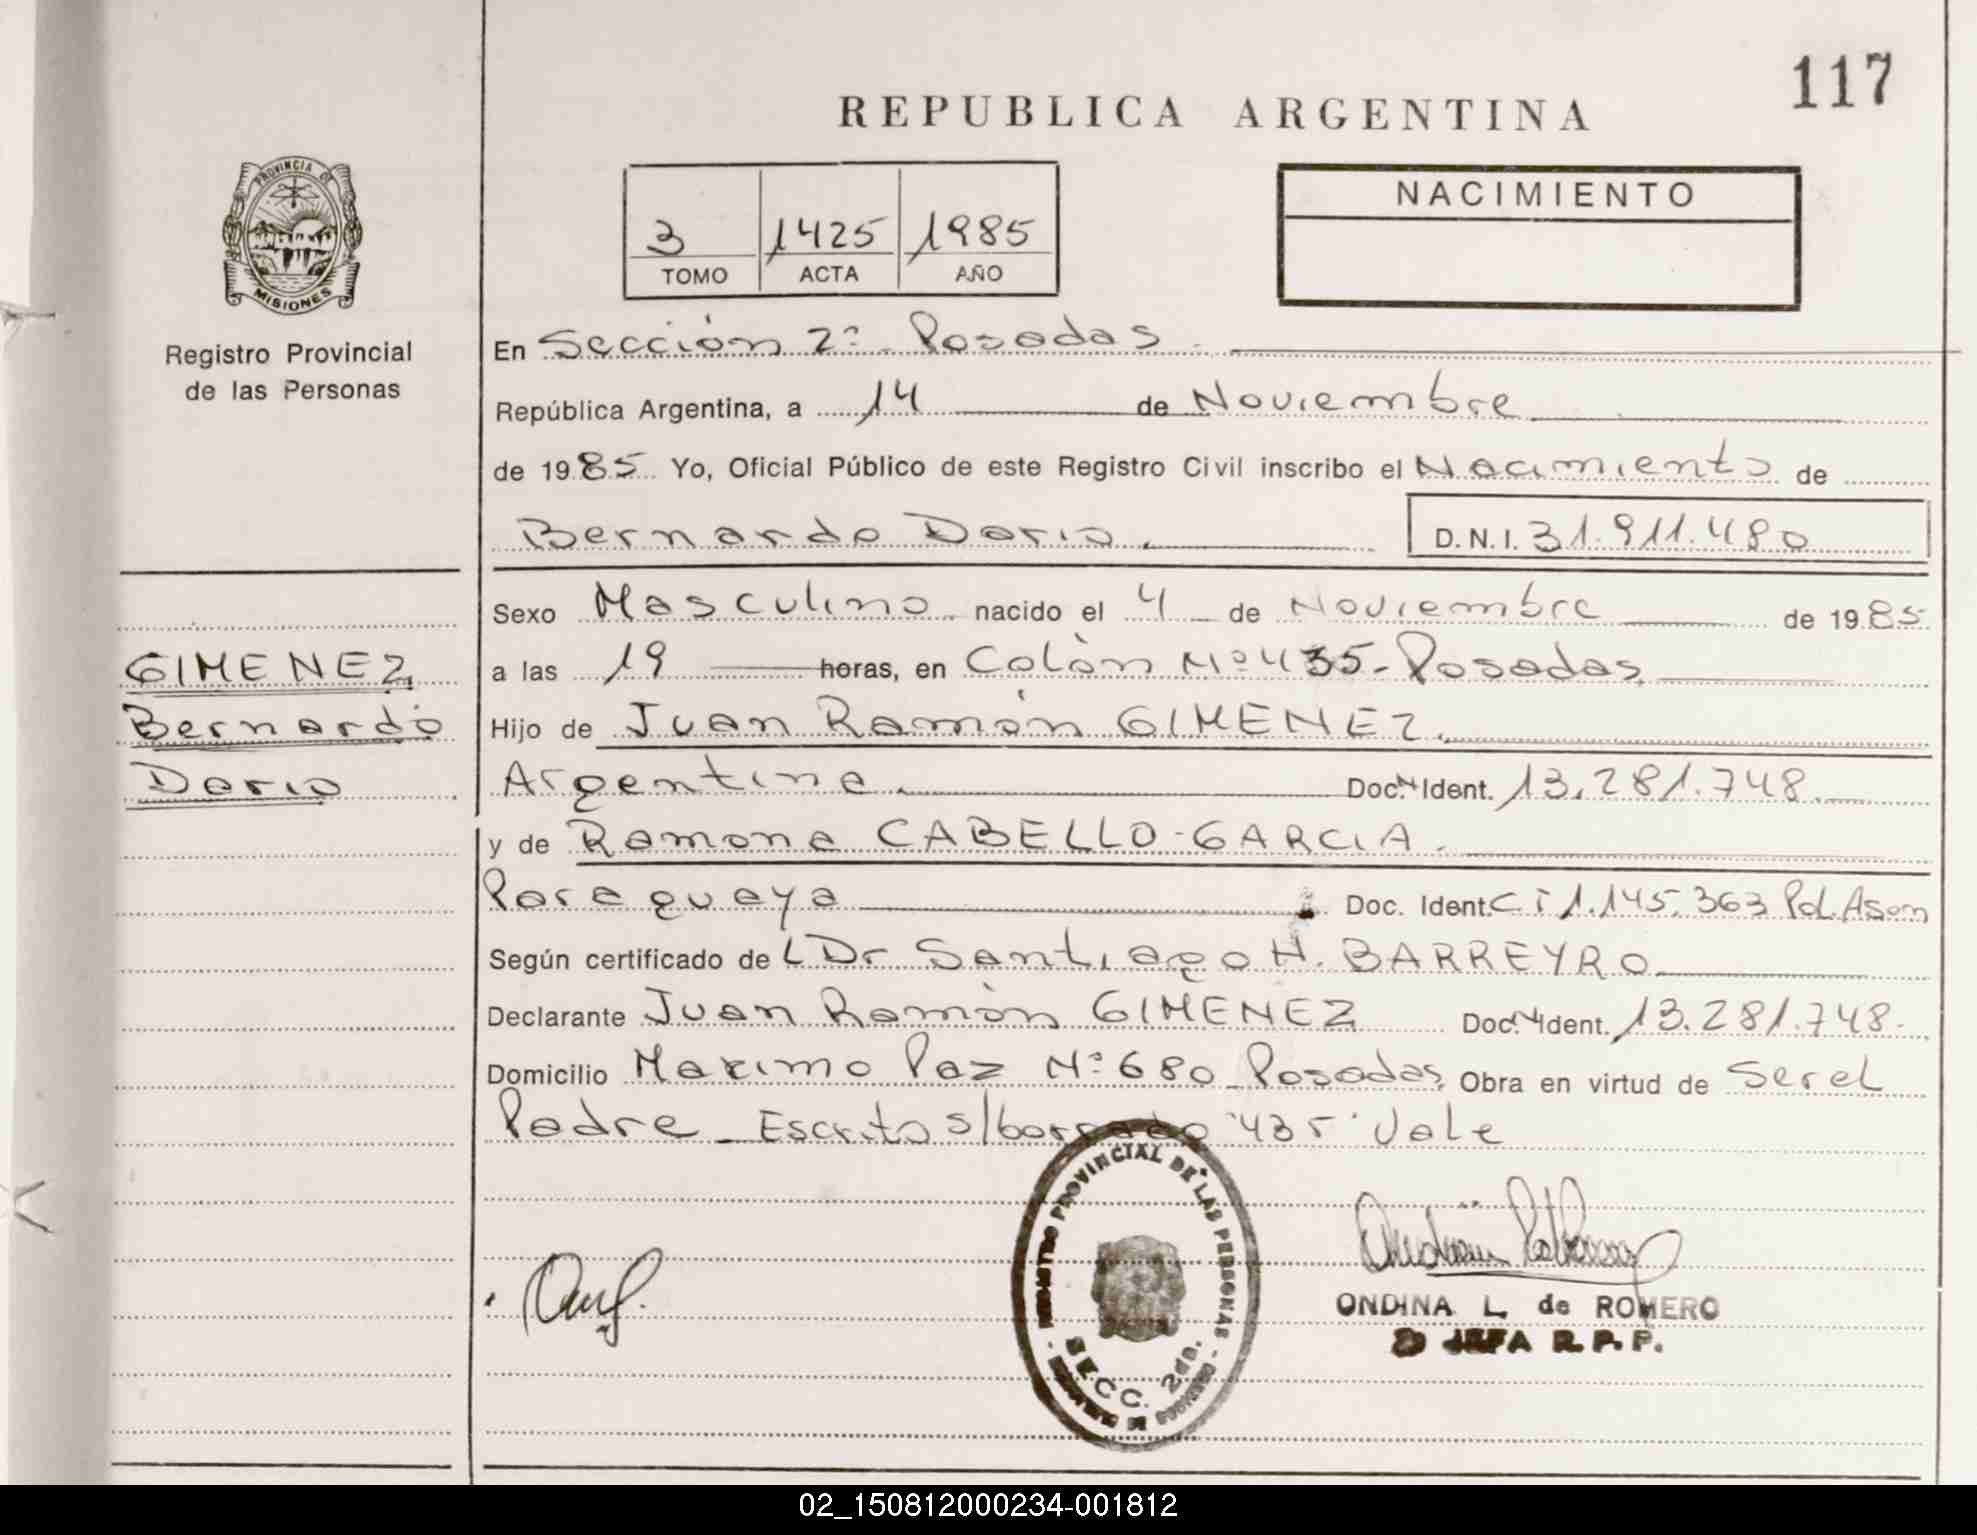 117
REPUBLICA ARGENTINA
PROVINCIA DE
MISIONES
Registro Provincial
de las Personas
3 1425 1985
TOMO ACTA AÑO
NACIMIENTO
En Sección 2ª Posadas
República Argentina, a 14 de Noviembre
de 1985 Yo, Oficial Público de este Registro Civil inscribo el Nacimiento de
Bernardo Dario. D.N.I. 31.911.480
GIMENEZ
Bernardo
Dario
Sexo Masculino nacido el 4 de Noviembre de 1985
a las 19 horas, en Colón Nº 435-Posadas
Hijo de Juan Ramón GIMENEZ.
Argentina. Doc. N Ident. 13.281.748.
y de Ramona CABELLO-GARCIA.
Paraguaya Doc. Ident. C I 1.145.363 Pol. Asun
Según certificado de L Dr Santiago H. BARREYRO
Declarante Juan Ramón GIMENEZ Doc. N Ident. 13.281.748.
Domicilio Maximo Paz Nº 680 Posadas, Obra en virtud de Ser el
Padre - Escrito s/borrado "435" Vale
REGISTRO PROVINCIAL DE LAS PERSONAS
SECC. 2da.
ONDINA L. de ROMERO
JEFA R.P.P.
02_150812000234-001812